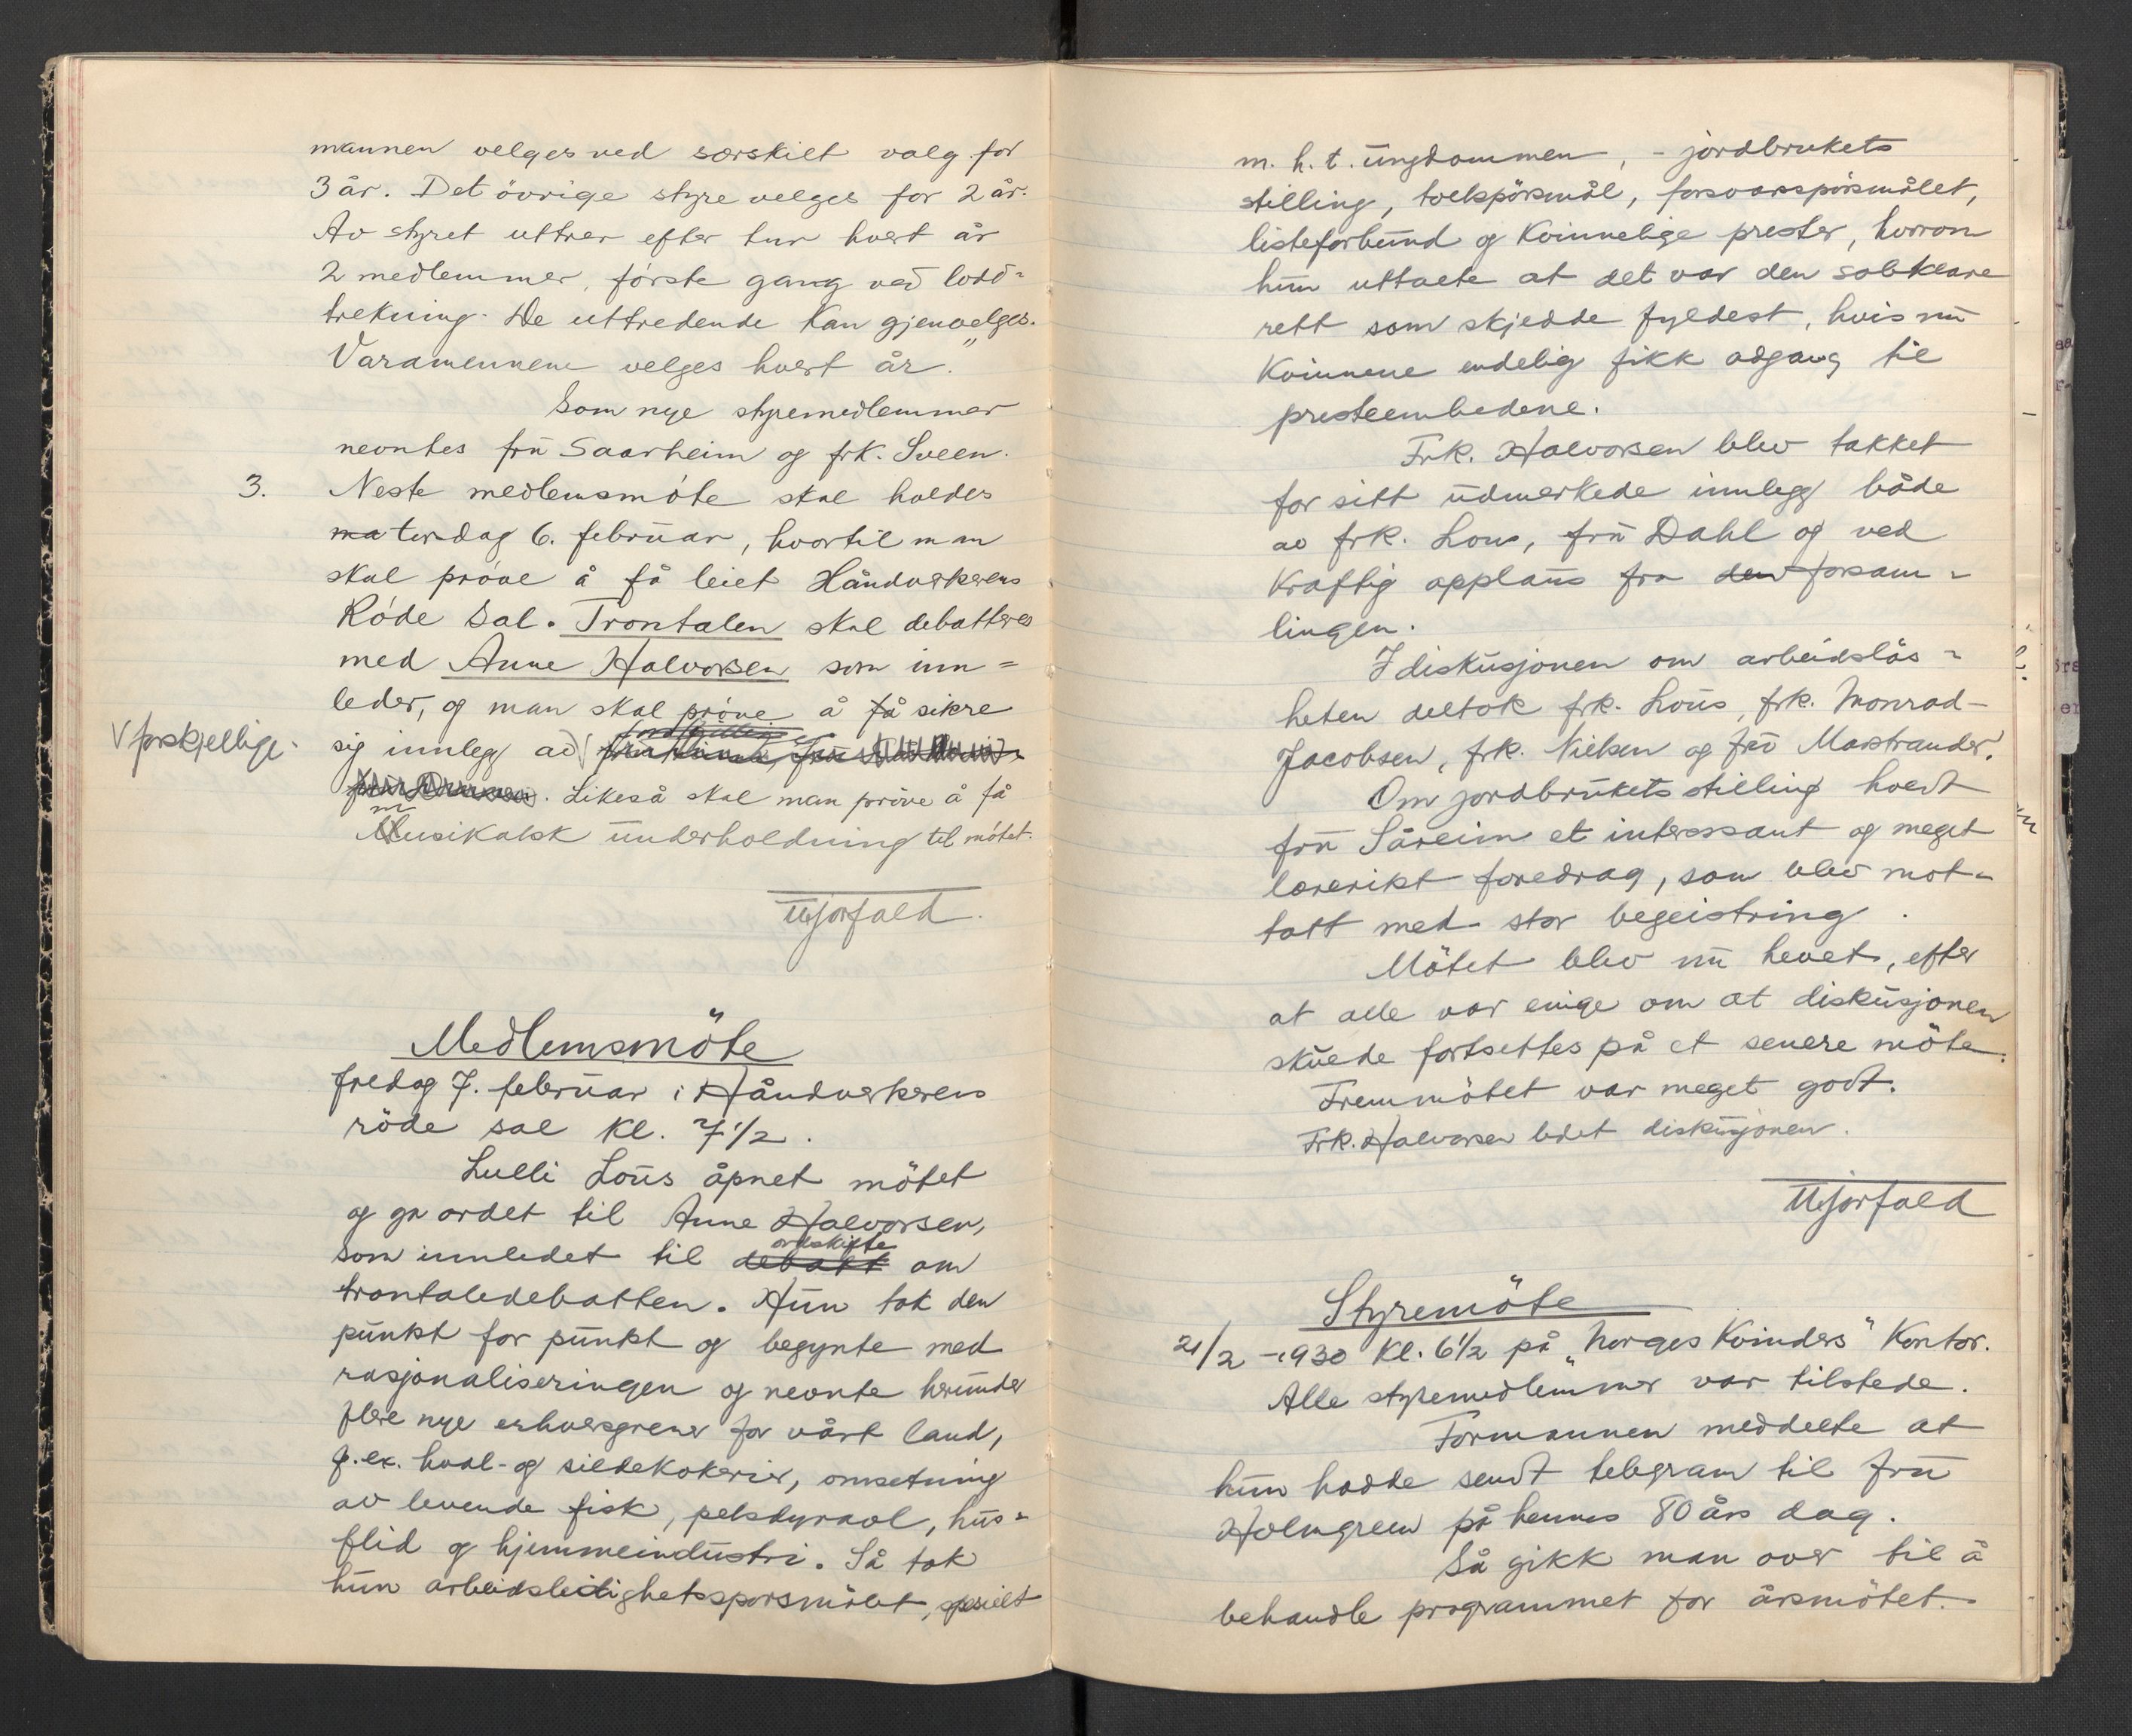 mannen velges ved særskilt valg for
3 år. Det övrige styre velges for 2 år.
Av styret uttrer efter tur hvert år
2 medlemmer, förste gang ved lodd=
trekning. De uttredende kan gjenvelges.
Varamennene velges hvert år."
Som nye styremedlemmer
nevntes frü Saarheim og frk. Sveen.
3. Neste medlemsmöte skal holdes
ma torsdag 6. februar, hvortil man
skal pröve å få leiet Håndverkerens
Röde Sal. Trontalen skal debatteres
med Anne Halvorsen som inn=
leder, og man skal pröve å få sikre
V forskjellige.
sig innlegg av V
. Likeså skal man pröve å få
Musikalsk ünderholdning til mötet.
MGorfald.
Medlemsmöte
fredag 7. februar i Håndverkerens
röde sal kl. 7 1/2.
Lulli Loüs åpnet mötet
og ga ordet til Anne Halvorsen,
ordskifte
som innledet til debatt om
trontaledebatten. Hün tok den
pünkt for pünkt og begynte med
rasjonaliseringen og nevnte heründer
flere nye erhversgrener for vårt land,
f. ex. hval- og sildekokerier, omsetning
av levende fisk, pelsdyravl, hüs=
flid og hjemmeindüstri. Så tok
hün arbeidsledighetsspørsmålet, spesielt
m. h. t. üngdommen, - jordbrukets
stilling, tollspörsmål, forsvarsspörsmålet,
listeforbünd og kvinnelige prester, hvorom
hün uttalte at det var den solklare
rett som skjedde fyldest, hvis nü
kvinnene endelig fikk adgang til
presteembedene.
Frk. Halvorsen blev takket
for sitt üdmerkede innlegg både
av frk. Lous, frü Dahl og ved
kraftig applaüs fra den forsam=
lingen.
I disküsjonen om arbeidslös=
heten deltok frk. Loüs, frk. Monrad-
Jacobsen, frk. Nielsen og frü Mostrander.
Om jordbrükets stilling holdt
frü Såreim et interessant og meget
lærerikt foredrag, som blev mot=
tatt med stor begeistring.
Mötet blev nü hevet, efter
at alle var enige om at disküsjonen
skülde fortsettes på et senere möte.
Fremmötet var meget godt.
Frk. Halvorsen ledet disküsjonen.
MGorfald
Styremöte
21/2 - 1930 kl. 6 1/2 på „Norges Kvinders" Kontor.
Alle styremedlemmer var tilstede.
Formannen meddelte at
hün hadde sendt telegram til frü
Holmgreen på hennes 80 års dag.
Så gikk man over til å
behandle programmet for årsmötet.